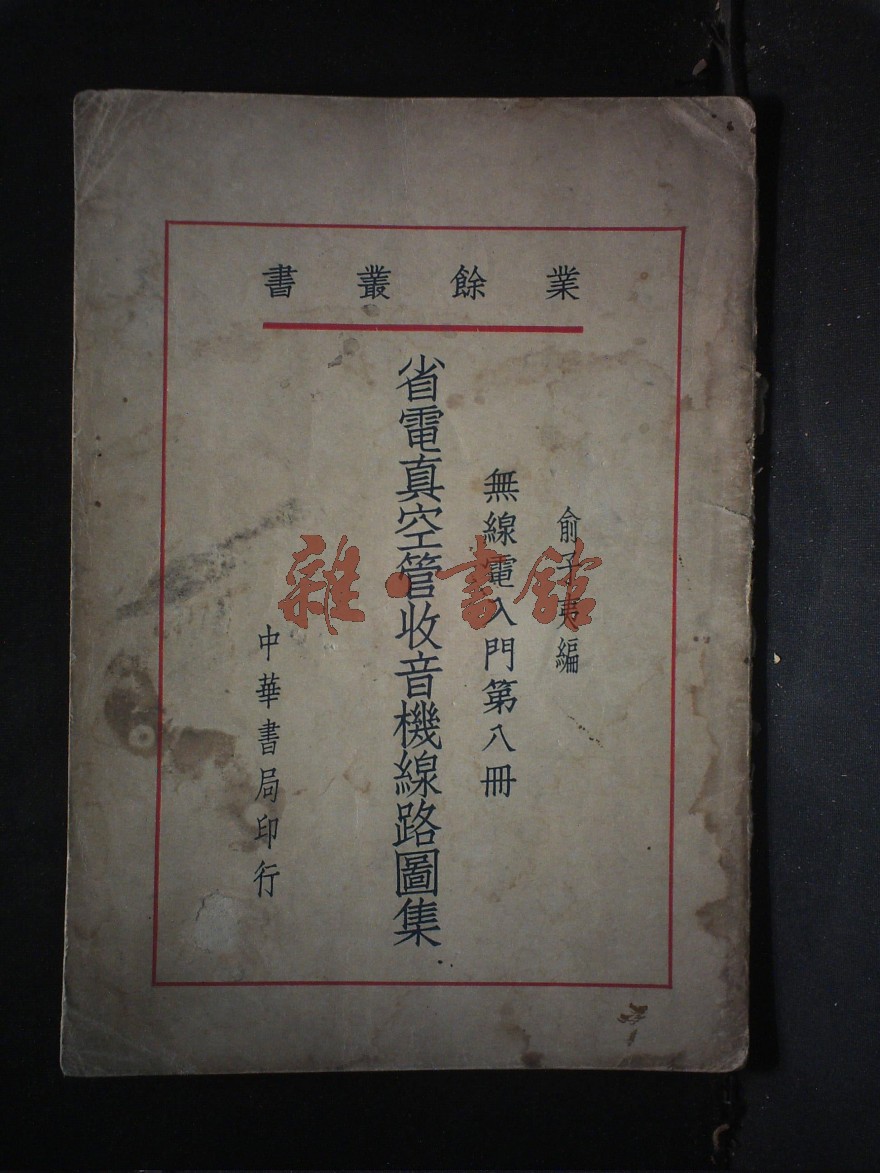 業餘叢書
俞子夷編
無線電入門第八冊
省電真空管收音機線路圖集
中華書局印行
雜·書館